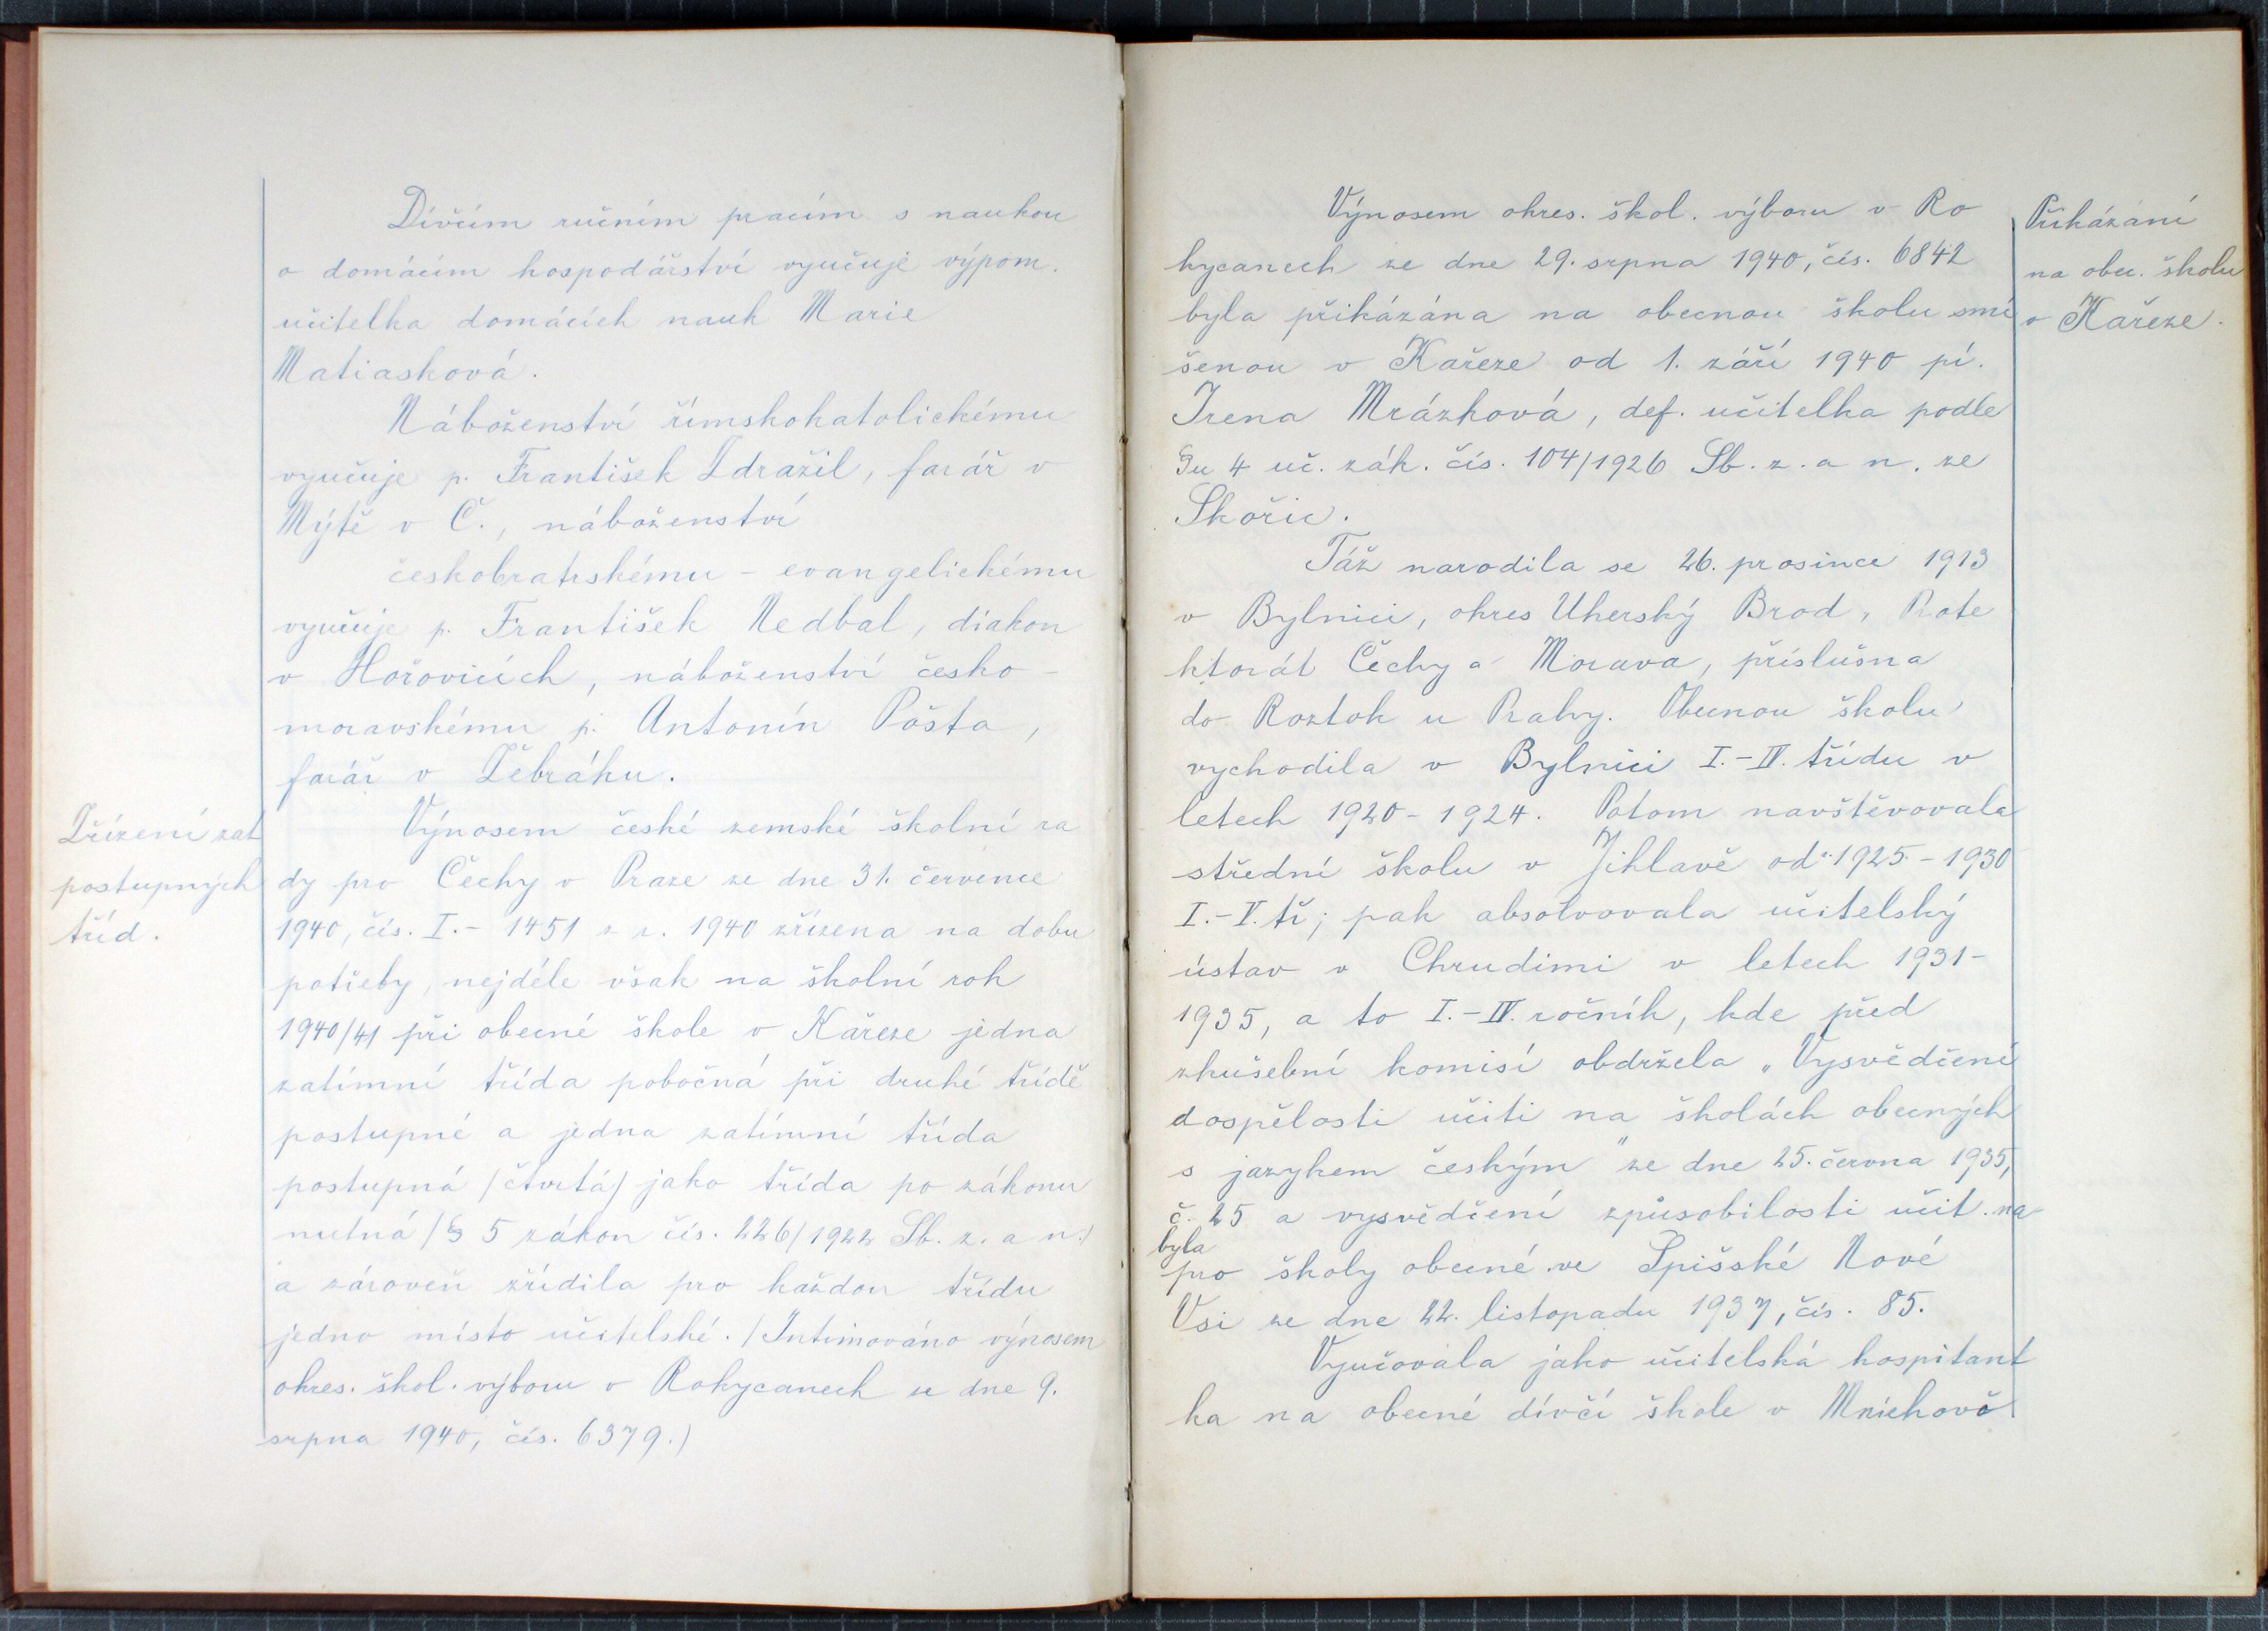 Dívčím ručním pracím s naukou
o domácím hospodářství vyučuje výpom.
učitelka domácích nauk Marie
Matiasková.
Náboženství římskokatolickému
vyučuje p. František Zdražil, farář v
Mýtě v Č., náboženství
českobratrskému - evangelickému
vyučuje p. František Nedbal, diakon
v Hořovicích, náboženství česko-
moravskému p. Antonín Pošta,
farář v Žebráku.
Zřízení zat.
postupných
tříd.
Výnosem české zemské školní ra
dy pro Čechy v Praze ze dne 31. července
1940, čís. I.- 1451 z r. 1940 zřízena na dobu
potřeby, nejdéle však na školní rok
1940/41 při obecné škole v Kařeze jedna
zatímní třída pobočná při druhé třídě
postupné a jedna zatímní třída
postupná /čtvrtá/ jako třída po zákonu
nutná /§ 5 zákon čís. 226/1922 Sb. z. a n./
a zároveň zřídila pro každou třídu
jedno místo učitelské. /Intimováno výnosem
okres. škol. výboru v Rokycanech ze dne 9.
srpna 1940, čís. 6379.)
Výnosem okres. škol. výboru v Ro
kycanech ze dne 29. srpna 1940, čís. 6842
byla přikázána na obecnou školu smí
šenou v Kařeze od 1. září 1940 pí.
Irena Mrázková, def. učitelka podle
§u 4 uč. zák. čís. 104/1926 Sb. z. a n. ze
Skořic.
Přikázání
na obec. školu
v Kařeze.
Táž narodila se 26. prosince 1913
v Bylnici, okres Uherský Brod, Prote
ktorát Čechy a Morava, příslušna
do Roztok u Prahy. Obecnou školu
vychodila v Bylnici I.-IV. třídu v
letech 1920 - 1924. Potom navštěvovala
střední školu v Jihlavě od 1925 - 1930
I.-V. tř; pak absolvovala učitelský
ústav v Chrudimi v letech 1931-
1935, a to I.-IV. ročník, kde před
zkušební komisí obdržela „Vysvědčení
dospělosti učiti na školách obecných
s jazykem českým" ze dne 25. června 1935,
č. 25 a vysvědčení způsobilosti učit. na-
byla
pro školy obecné ve Spišské Nové
Vsi ze dne 22. listopadu 1937, čís. 85.
Vyučovala jako učitelská hospitant
ka na obecné dívčí škole v Mnichově